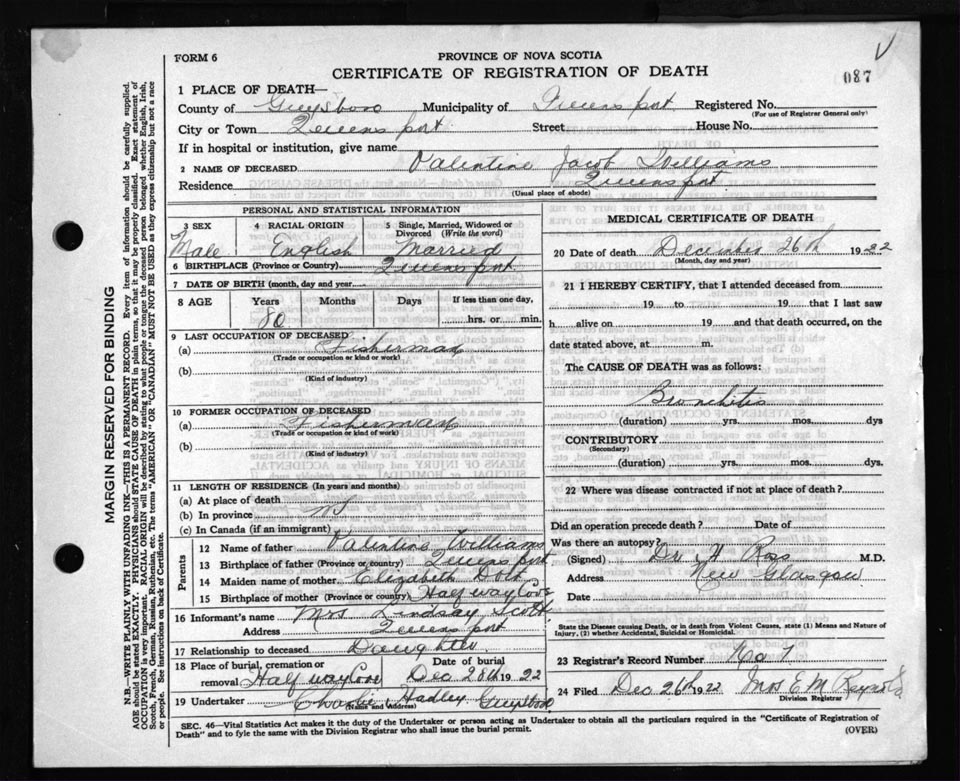 FORM 6
PROVINCE OF NOVA SCOTIA
CERTIFICATE OF REGISTRATION OF DEATH
087
1 PLACE OF DEATH—
County of Guysboro Municipality of Queensport Registered No.
(For use of Registrar General only)
City or Town Queensport Street House No.
If in hospital or institution, give name
2 NAME OF DECEASED Valentine Jacob Williams
Residence Queensport
(Usual place of abode)
PERSONAL AND STATISTICAL INFORMATION
3 SEX 4 RACIAL ORIGIN 5 Single, Married, Widowed or Divorced (Write the word)
Male English Married
6 BIRTHPLACE (Province or Country) Queensport
7 DATE OF BIRTH (month, day and year)
8 AGE Years Months Days If less than one day,
80 hrs. or min.
9 LAST OCCUPATION OF DECEASED
(a) Fisherman
(Trade or occupation or kind or work)
(b)
(Kind of industry)
10 FORMER OCCUPATION OF DECEASED
(a) Fisherman
(Trade or occupation or kind of work)
(b)
(Kind of industry)
11 LENGTH OF RESIDENCE (In years and months)
(a) At place of death
(b) In province NS
(c) In Canada (if an immigrant)
Parents
12 Name of father Valentine Williams
13 Birthplace of father (Province or country) Queensport
14 Maiden name of mother Elizabeth
15 Birthplace of mother (Province or country) Half way Cove
16 Informant's name Mrs Lindsay Scott
Address Queensport
17 Relationship to deceased Daughter
18 Place of burial, cremation or removal Half way Cove Date of burial Dec 28th 1922
19 Undertaker Charlie Hadley Guysboro
(Name and address)
MEDICAL CERTIFICATE OF DEATH
20 Date of death December 26th 1922
(Month, day and year)
21 I HEREBY CERTIFY, that I attended deceased from
19 to 19 that I last saw
h alive on 19 and that death occurred, on the
date stated above, at m.
The CAUSE OF DEATH was as follows:
Bronchitis
(duration) yrs. mos. dys
CONTRIBUTORY
(Secondary)
(duration) yrs. mos. dys.
22 Where was disease contracted if not at place of death?
Did an operation precede death? Date of
Was there an autopsy?
(Signed) Dr H Ross M.D.
Address New Glasgow
Date
State the Disease causing Death, or in death from Violent Causes, state (1) Means and Nature of Injury, (2) whether Accidental, Suicidal or Homicidal.
23 Registrar's Record Number No 7
24 Filed Dec 26th 1922 Mrs E M
Division Registrar
SEC. 46—Vital Statistics Act makes it the duty of the Undertaker or person acting as Undertaker to obtain all the particulars required in the "Certificate of Registration of
Death" and to file the same with the Division Registrar who shall issue the burial permit.
(OVER)
MARGIN RESERVED FOR BINDING
N.B.—WRITE PLAINLY WITH UNFADING INK—THIS IS A PERMANENT RECORD. Every item of information should be carefully supplied.
AGE should be stated EXACTLY. PHYSICIANS should STATE CAUSE OF DEATH in plain terms, so that it may be properly classified. Exact statement of
OCCUPATION is very important. RACIAL ORIGIN will be described by stating to what people or tongue the deceased person belonged whether English, Irish,
Scotch, French, German, Russian, Ruthenian, etc. The terms "AMERICAN" OR "CANADIAN" MUST NOT BE USED as they express citizenship but not a race
or people. See instructions on back of Certificate.